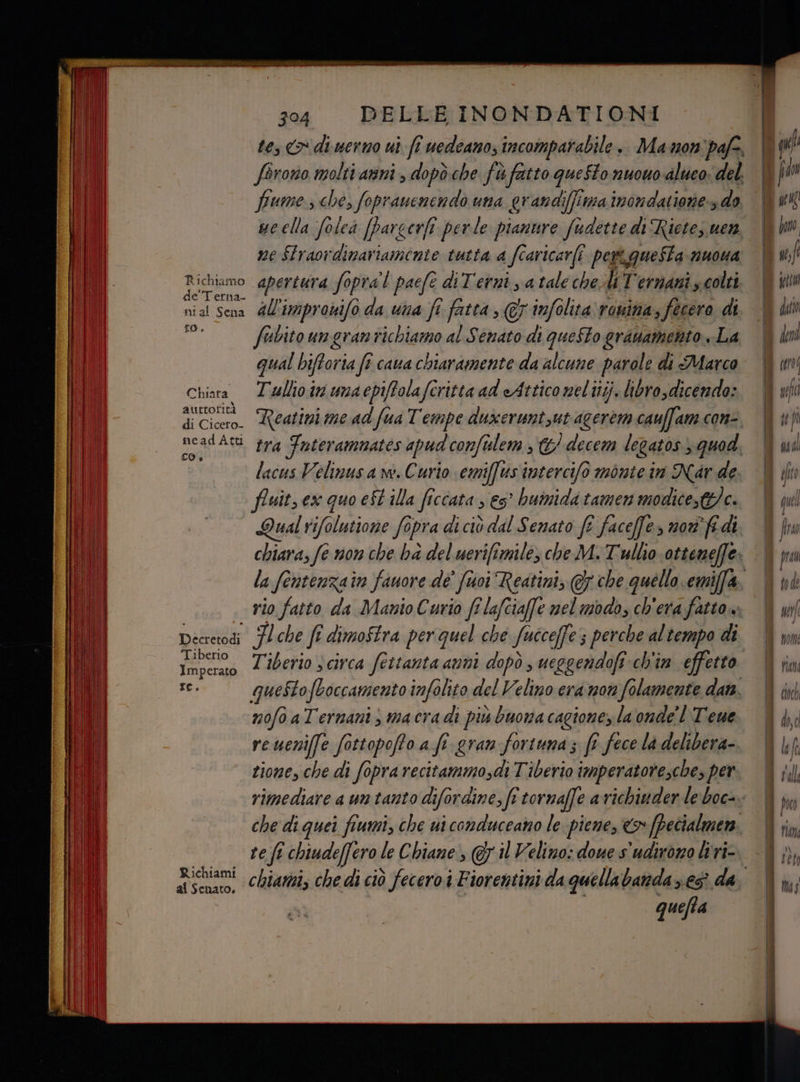 304 DELLE INONDATIONI
te, & di uerno ui ſi uedeano, incomparabile. Ma non paſ-
ſorono molti anni, dopò che fù fatto queſto nuouo alueo del
fiume, che, ſoprauenendo una grandiſſima inondatione, do
ue ella ſolea ſpargerſi per le pianure ſudette di Riete, uen
ne ſtraordinariamente tutta a ſcaricarſi per queſta nuoua
Richiamo de'Ternani al Senato.
apertura ſopra'l paeſe di Terni, a tale che li Ternani, colti
all'improuiſo da una ſi fatta, & inſolita rouina, fecero di
ſubito un gran richiamo al Senato di queſto grauamento. La
qual hiſtoria ſi caua chiaramente da alcune parole di Marco
Chiara auttorità di Cicerone ad Attico.
Tullio in una epiſtola ſcritta ad Attico nel iiij. libro, dicendo:
Reatini me ad ſua Tempe duxerunt, ut agerem cauſſam con-
tra Interamnates apud conſulem, & decem legatos, quod
lacus Velinus a M. Curio emiſſus interciſo monte in Nar de
fluit, ex quo eſt illa ſiccata, es' humida tamen modice, &c.
Qual riſolutione ſopra di ciò dal Senato ſi faceſſe, non ſi di
chiara, ſe non che hà del ueriſimile, che M. Tullio otteneſſe
la ſentenza in fauore de' ſuoi Reatini, & che quello emiſſa
rio fatto da Manio Curio ſi laſciaſſe nel modo, ch'era fatto.
Decreto di Tiberio Imperatore.
Il che ſi dimoſtra per quel che ſucceſſe; perche al tempo di
Tiberio, circa ſettanta anni dopò, ueggendoſi ch'in effetto
queſto sboccamento inſolito del Velino era non ſolamente dan
noſo a Ternani, ma era di più buona cagione, la onde'l Teue
re ueniſſe ſottopoſto a ſi gran fortuna; ſi fece la delibera-
tione, che di ſopra recitammo, di Tiberio imperatore, che, per
rimediare a un tanto diſordine, ſi tornaſſe a richiuder le boc-
che di quei fiumi, che ui conduceano le piene, & ſpecialmen
te ſi chiudeſſero le Chiane, & il Velino: doue s'udirono li ri-
Richiami al Senato.
chiami, che di ciò fecero i Fiorentini da quella banda, es' da
queſta